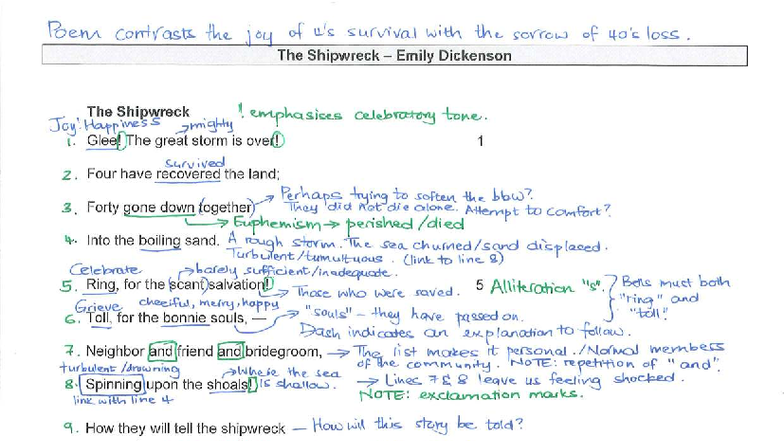 Poem contrasts the joy of 4's survival with the sorrow of 40's loss.
The Shipwreck – Emily Dickenson
The Shipwreck ! emphasises celebratory tone.
Joy! Happiness → mighty
1. Glee! The great storm is over! 1
survived
2. Four have recovered the land;
→ Perhaps trying to soften the blow?
3. Forty gone down (together) They did not die alone. Attempt to comfort?
→ Euphemism → perished/died
4. Into the boiling sand. A rough storm. The sea churned/sand displaced.
Turbulent/tumultuous. (link to line 8)
Celebrate → barely sufficient/inadequate.
5. Ring, for the (scant) salvation! 5 Alliteration "s".
→ Those who were saved.
Bells must both "ring" and "toll".
Grieve cheerful, merry, happy
6. Toll, for the bonnie souls, — → "souls" – they have passed on.
Dash indicates an explanation to follow.
7. Neighbor and friend and bridegroom, → The list makes it personal./Normal members
of the community. NOTE: repetition of "and".
turbulent/drowning → Where the sea is shallow.
8. Spinning upon the shoals! → Lines 7 & 8 leave us feeling shocked.
link with line 4 NOTE: exclamation marks.
9. How they will tell the shipwreck — How will this story be told?